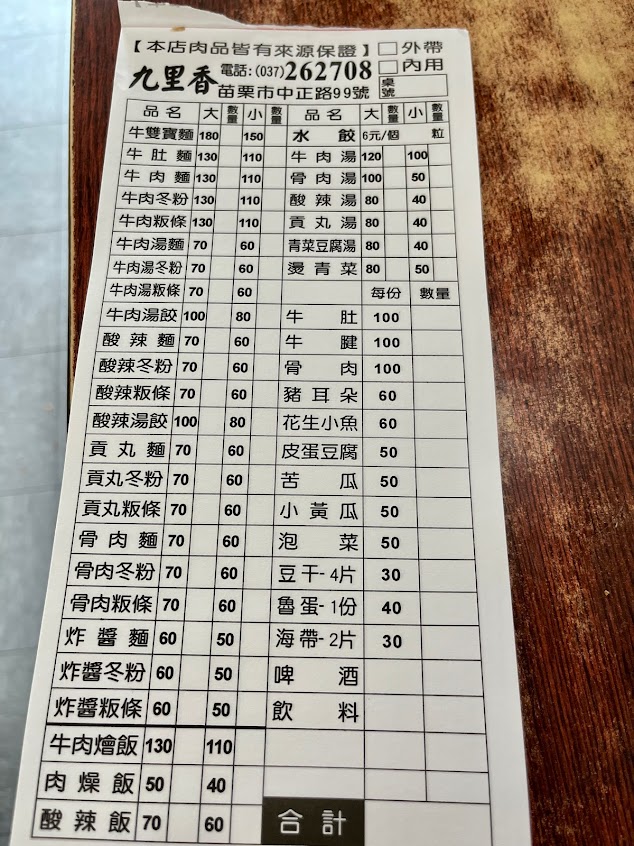 【本店肉品皆有來源保證】 □外帶
九里香 電話:(037)262708 □內用
苗栗市中正路99號 桌號
品名 大 數量 小 數量 品名 大 數量 小 數量
牛雙寶麵 180 150 水餃 6元/個 粒
牛肚麵 130 110 牛肉湯 120 100
牛肉麵 130 110 骨肉湯 100 50
牛肉冬粉 130 110 酸辣湯 80 40
牛肉粄條 130 110 貢丸湯 80 40
牛肉湯麵 70 60 青菜豆腐湯 80 40
牛肉湯冬粉 70 60 燙青菜 80 50
牛肉湯粄條 70 60 每份 數量
牛肉湯餃 100 80 牛肚 100
酸辣麵 70 60 牛腱 100
酸辣冬粉 70 60 骨肉 100
酸辣粄條 70 60 豬耳朵 60
酸辣湯餃 100 80 花生小魚 60
貢丸麵 70 60 皮蛋豆腐 50
貢丸冬粉 70 60 苦瓜 50
貢丸粄條 70 60 小黃瓜 50
骨肉麵 70 60 泡菜 50
骨肉冬粉 70 60 豆干-4片 30
骨肉粄條 70 60 魯蛋-1份 40
炸醬麵 60 50 海帶-2片 30
炸醬冬粉 60 50 啤酒
炸醬粄條 60 50 飲料
牛肉燴飯 130 110
肉燥飯 50 40
酸辣飯 70 60 合計